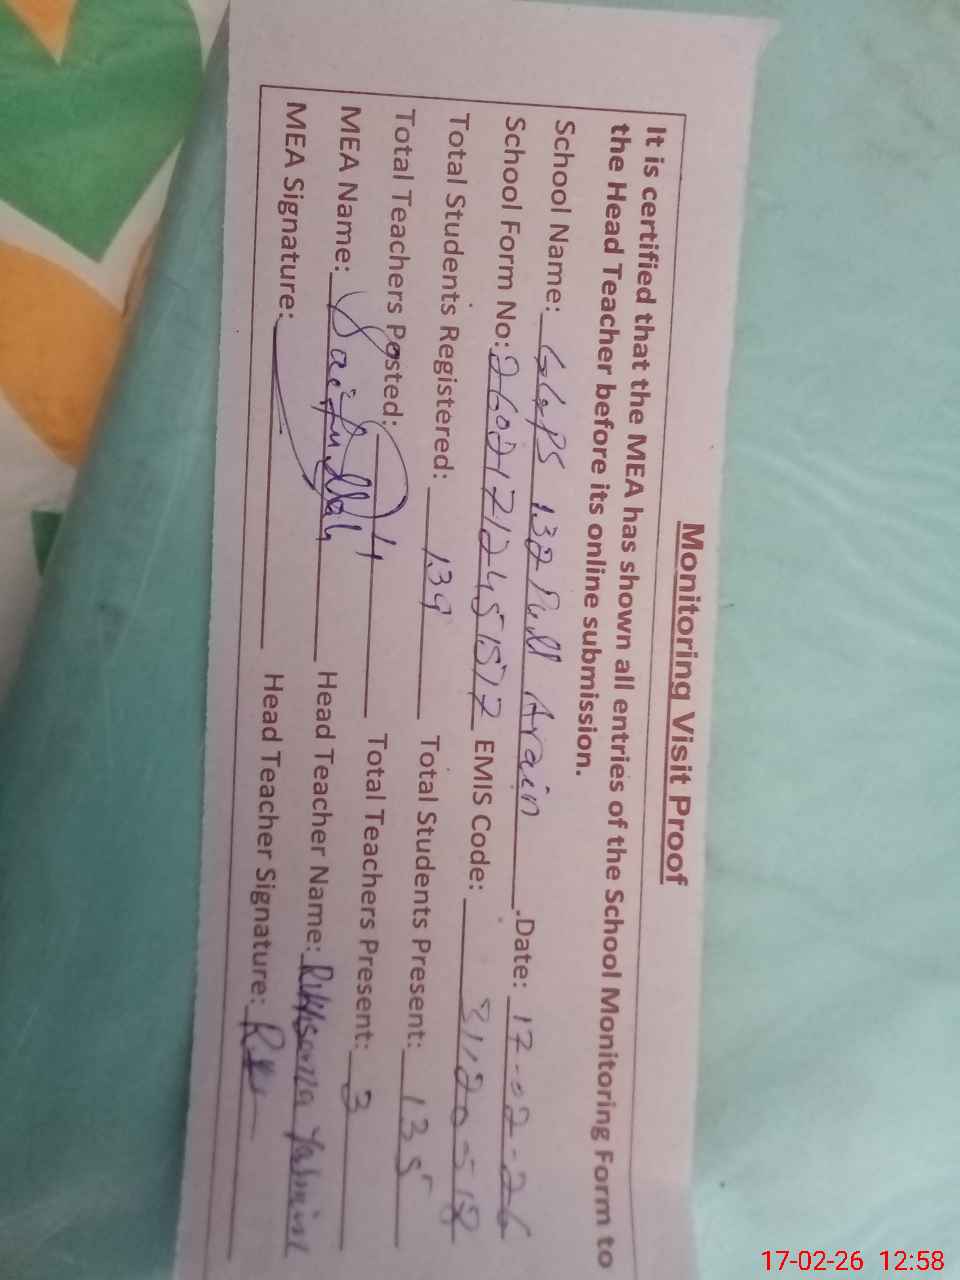 Monitoring Visit Proof
It is certified that the MEA has shown all entries of the School Monitoring Form to
the Head Teacher before its online submission.
School Name: GGPS 132 Pull Arain .Date: 17-02-26
School Form No: EMIS Code: 31120518
Total Students Registered: 139 Total Students Present: 135
Total Teachers Posted: 4 Total Teachers Present: 3
MEA Name: Saifullah Head Teacher Name: Rukhsana
MEA Signature: Head Teacher Signature:
17-02-26 12:58